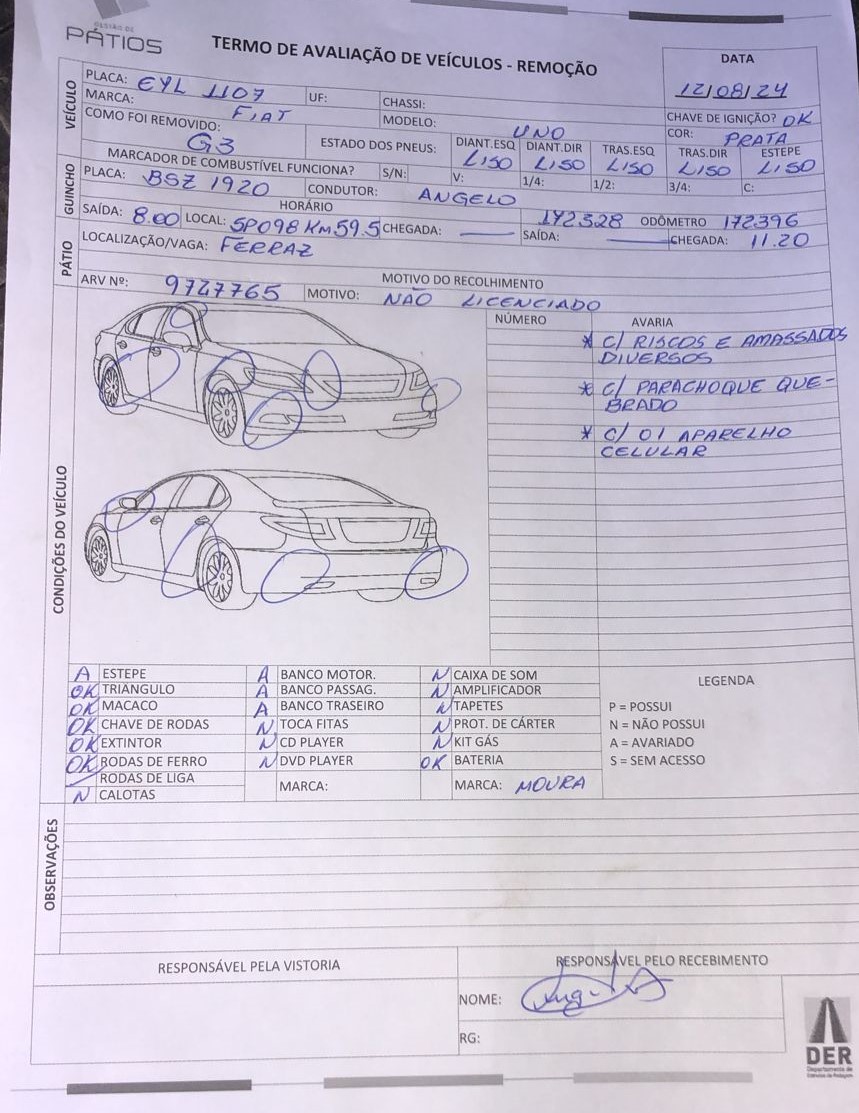 GESTÃO DE
PÁTIOS
TERMO DE AVALIAÇÃO DE VEÍCULOS - REMOÇÃO
DATA
12/08/24
VEÍCULO
PLACA: EYL 1107 UF: CHASSI:
CHAVE DE IGNIÇÃO? OK
MARCA: FIAT MODELO: UNO
COR: PRATA
COMO FOI REMOVIDO: G3
ESTADO DOS PNEUS: DIANT.ESQ LISO DIANT.DIR LISO TRAS.ESQ LISO TRAS.DIR LISO ESTEPE LISO
MARCADOR DE COMBUSTÍVEL FUNCIONA? S/N: V: 1/4: 1/2: 3/4: C:
GUINCHO
PLACA: BSZ 1920 CONDUTOR: ANGELO
HORÁRIO 172328 ODÔMETRO 172396
SAÍDA: 8.00 LOCAL: SP098 KM59.5 CHEGADA: — SAÍDA: — CHEGADA: 11.20
PÁTIO
LOCALIZAÇÃO/VAGA: FERRAZ
MOTIVO DO RECOLHIMENTO
ARV Nº: 9727765 MOTIVO: NÃO LICENCIADO
CONDIÇÕES DO VEÍCULO
NÚMERO AVARIA
* C/ RISCOS E AMASSADOS
DIVERSOS
* C/ PARACHOQUE QUE-
BRADO
* C/ 01 APARELHO
CELULAR
A ESTEPE A BANCO MOTOR. N CAIXA DE SOM
OK TRIANGULO A BANCO PASSAG. N AMPLIFICADOR
OK MACACO A BANCO TRASEIRO N TAPETES
OK CHAVE DE RODAS N TOCA FITAS N PROT. DE CÁRTER
OK EXTINTOR N CD PLAYER N KIT GÁS
OK RODAS DE FERRO N DVD PLAYER OK BATERIA
RODAS DE LIGA MARCA: MARCA: MOURA
N CALOTAS
LEGENDA
P = POSSUI
N = NÃO POSSUI
A = AVARIADO
S = SEM ACESSO
OBSERVAÇÕES
RESPONSÁVEL PELA VISTORIA RESPONSÁVEL PELO RECEBIMENTO
NOME:
RG:
DER